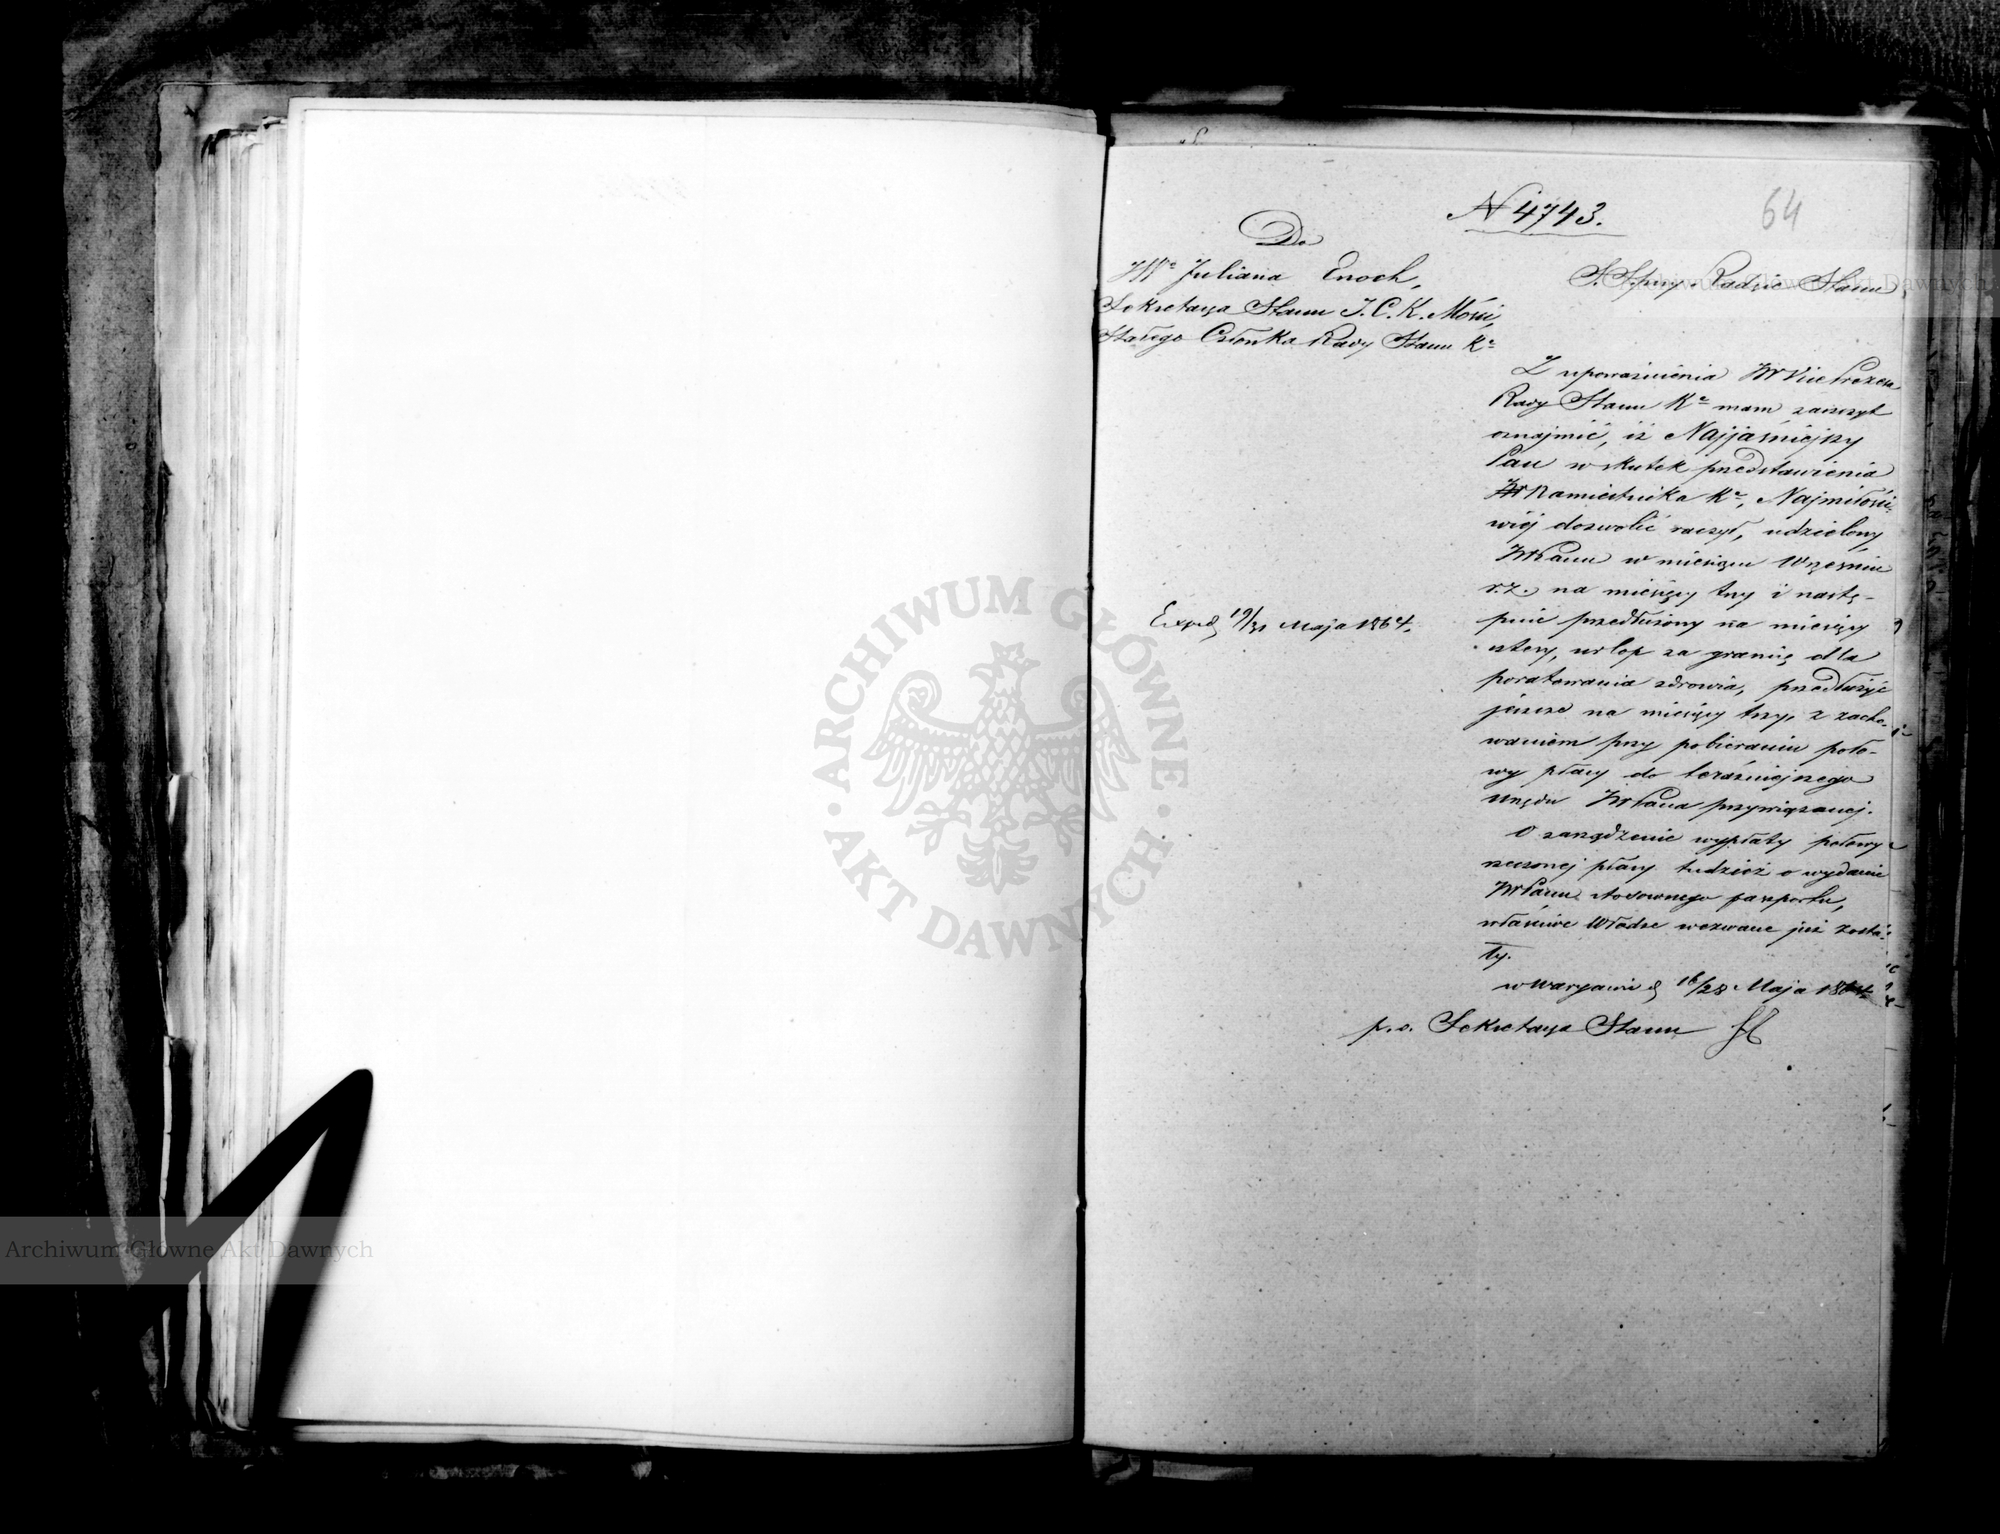 N 4743.
64
Do
JWo Juliana Enoch,
Sekretarza Stanu J. C. K. Mości,
Stałego Członka Rady Stanu Ka
S. Spny Radzie Stanu
Z upoważnienia JW Vice Prezesa
Rady Stanu Ka mam zaszczyt
oznajmić, iż Najjaśniejszy
Pan w skutek przedstawienia
JW Namiestnika Ka, Najmiłości-
wiéj dozwolić raczył, udzielony
JWPanu w miesiącu Wrześniu
r. z. na miesięcy trzy i nastę-
pnie przedłużony na miesięcy
cztery, urlop za granicę dla
poratowania zdrowia, przedłużyć
jeszcze na miesięcy trzy, z zacho-
waniem przy pobieraniu poło-
wy płacy do teraźniejszego
urzędu JWPana przywiązanej.
O zarządzenie wypłaty połowy
rzeczonej płacy tudzież o wydanie
JWPanu stosownego paszportu,
właściwe Władze wezwane już zosta-
ły.
w Warszawie d 16/28 Maja 1864
p. o. Sekretarza Stanu
Exped 19/31 Maja 1864.
ARCHIWUM GŁÓWNE AKT DAWNYCH
Archiwum Główne Akt Dawnych
Archiwum Główne Akt Dawnych